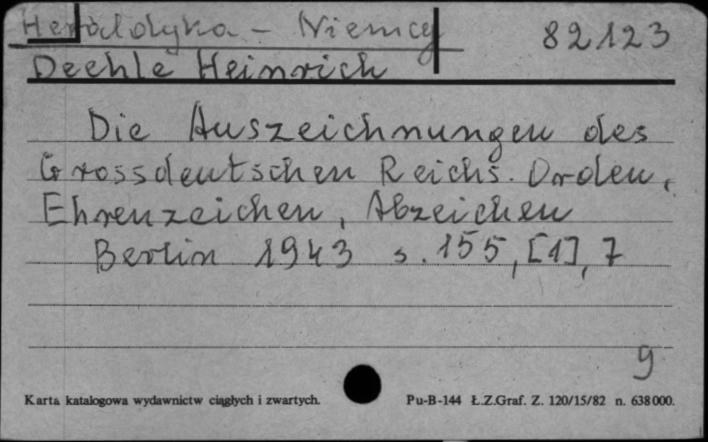 Heraldyka - Niemcy 82123
Deehle Heinrich
Die Auszeichnungen des
Grossdeutschen Reichs. Orden,
Ehrenzeichen, Abzeichen
Berlin 1943 s. 155, [1], 7
9
Karta katalogowa wydawnictw ciągłych i zwartych. Pu-B-144 Ł.Z.Graf. Z. 120/15/82 n. 638000.